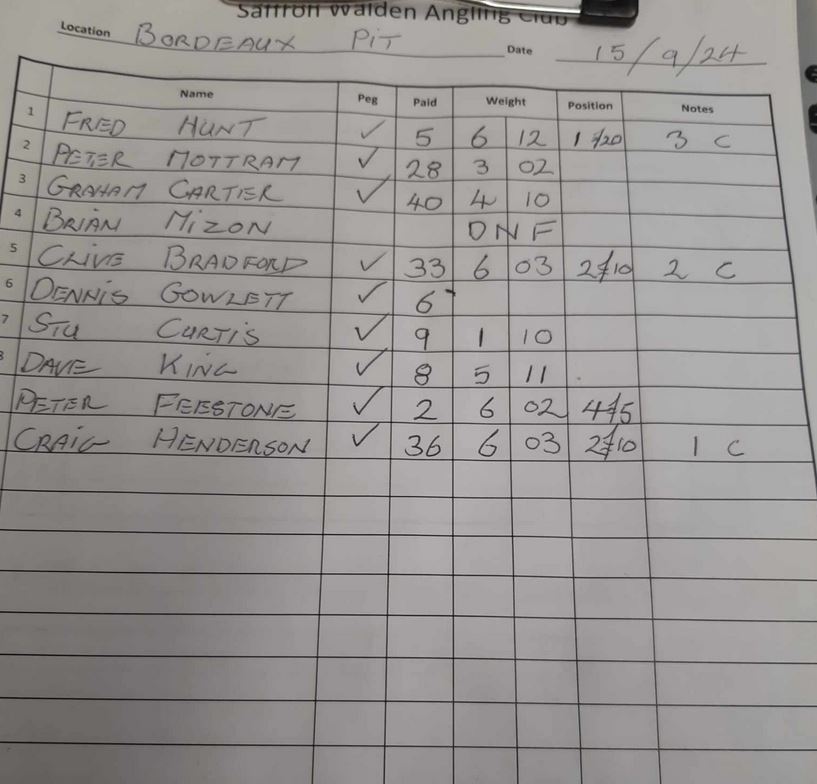 Saffron Walden Angling Club
Location BORDEAUX PIT Date 15/9/24
Name Peg Paid Weight Position Notes
1 FRED HUNT ✓ 5 6 12 1 £20 3 C
2 PETER MOTTRAM ✓ 28 3 02
3 GRAHAM CARTIER ✓ 40 4 10
4 BRIAN MIZON DNF
5 CLIVE BRADFORD ✓ 33 6 03 2 £10 2 C
6 DENNIS GOWLETT ✓ 6
7 STU CURTIS ✓ 9 1 10
8 DAVE KING ✓ 8 5 11
PETER FEESTONE ✓ 2 6 02 4 £5
CRAIG HENDERSON ✓ 36 6 03 2 £10 1 C